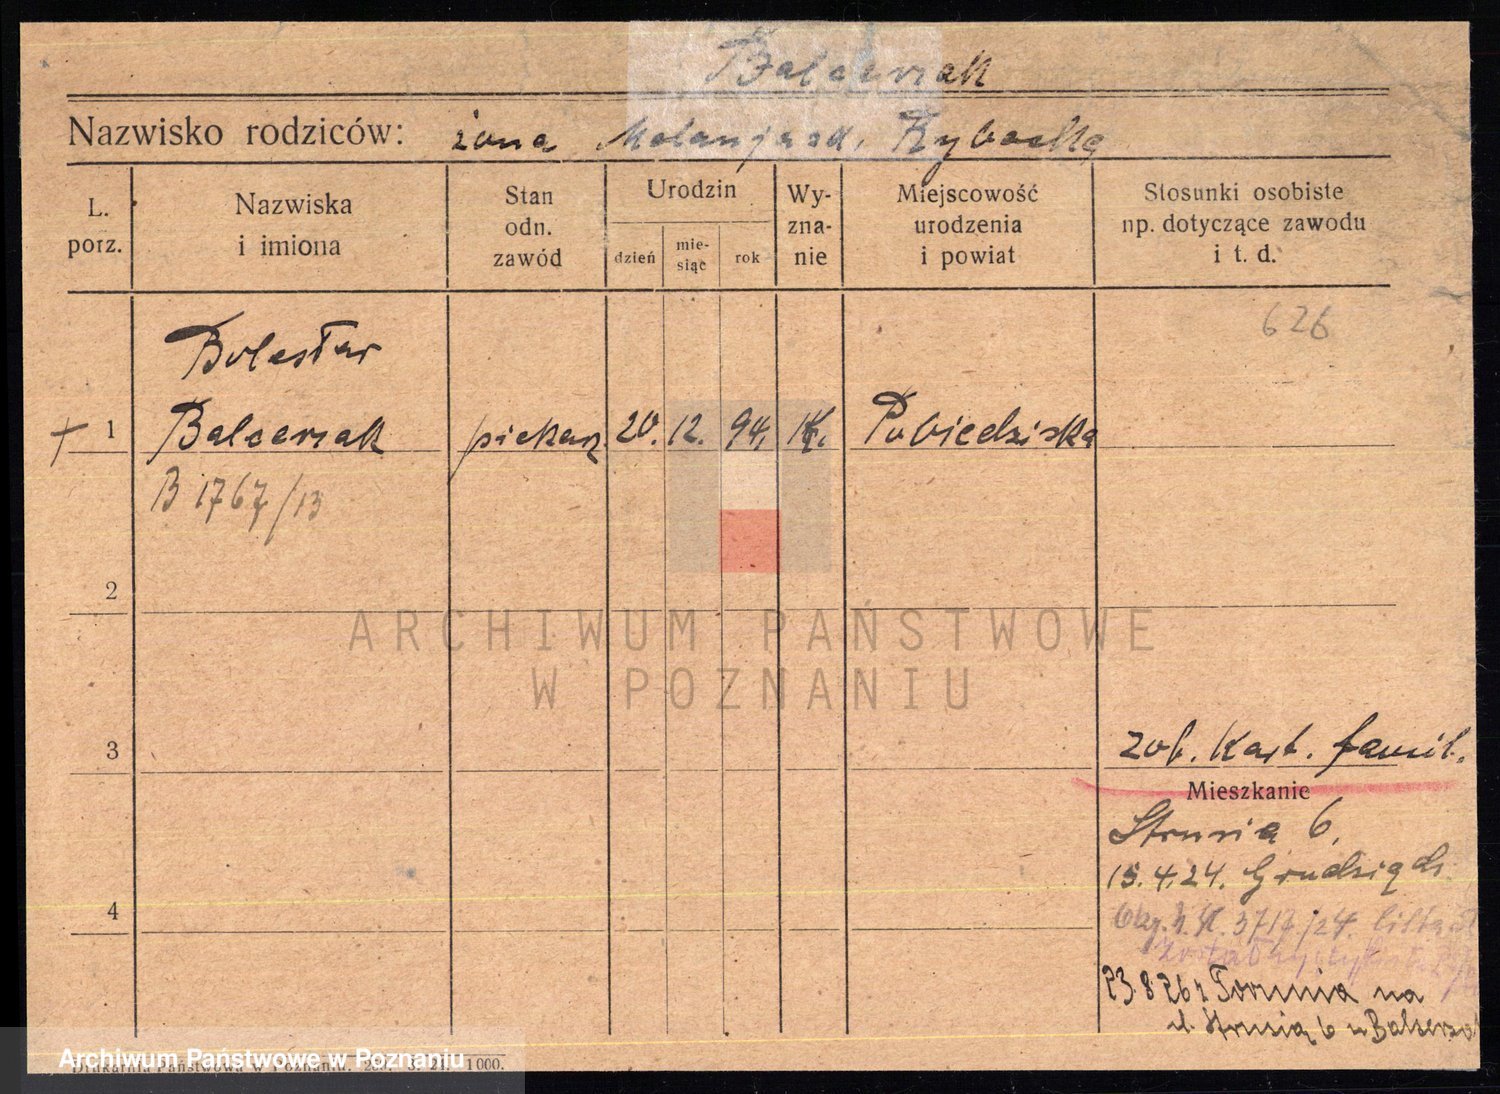 Balcerzak
Nazwisko rodziców: żona Melanja zd. Rybacka
L. porz.
Nazwiska i imiona
Stan odn. zawód
Urodzin
dzień
mie-siąc
rok
Wy-zna-nie
Miejscowość urodzenia i powiat
Stosunki osobiste np. dotyczące zawodu i t. d.
626
Bolesław
1 Balcerzak piekarz 20. 12. 94. Kt. Pobiedziska
B 1767/13
2
ARCHIWUM PAŃSTWOWE
W POZNANIU
3
zob. Kart. famil.
Mieszkanie
Strusia 6,
15.4.24. Grudziądz
4
3717/24.
23 8 26 z Torunia na
ul. Strusią 6 u Balcerza
Archiwum Państwowe w Poznaniu
Drukarnia Państwowa w Poznaniu. 1000.